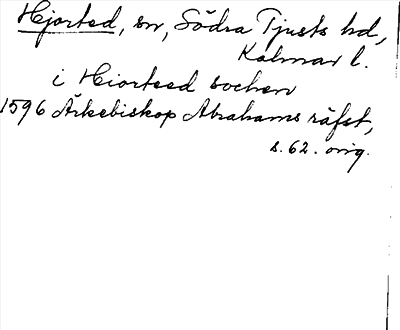 Hjorted, sn, Södra Tjusts hd,
Kalmar l.
i Hiorteed sochen
1596 Ärkebiskop Abrahams räfst,
s. 62. orig.